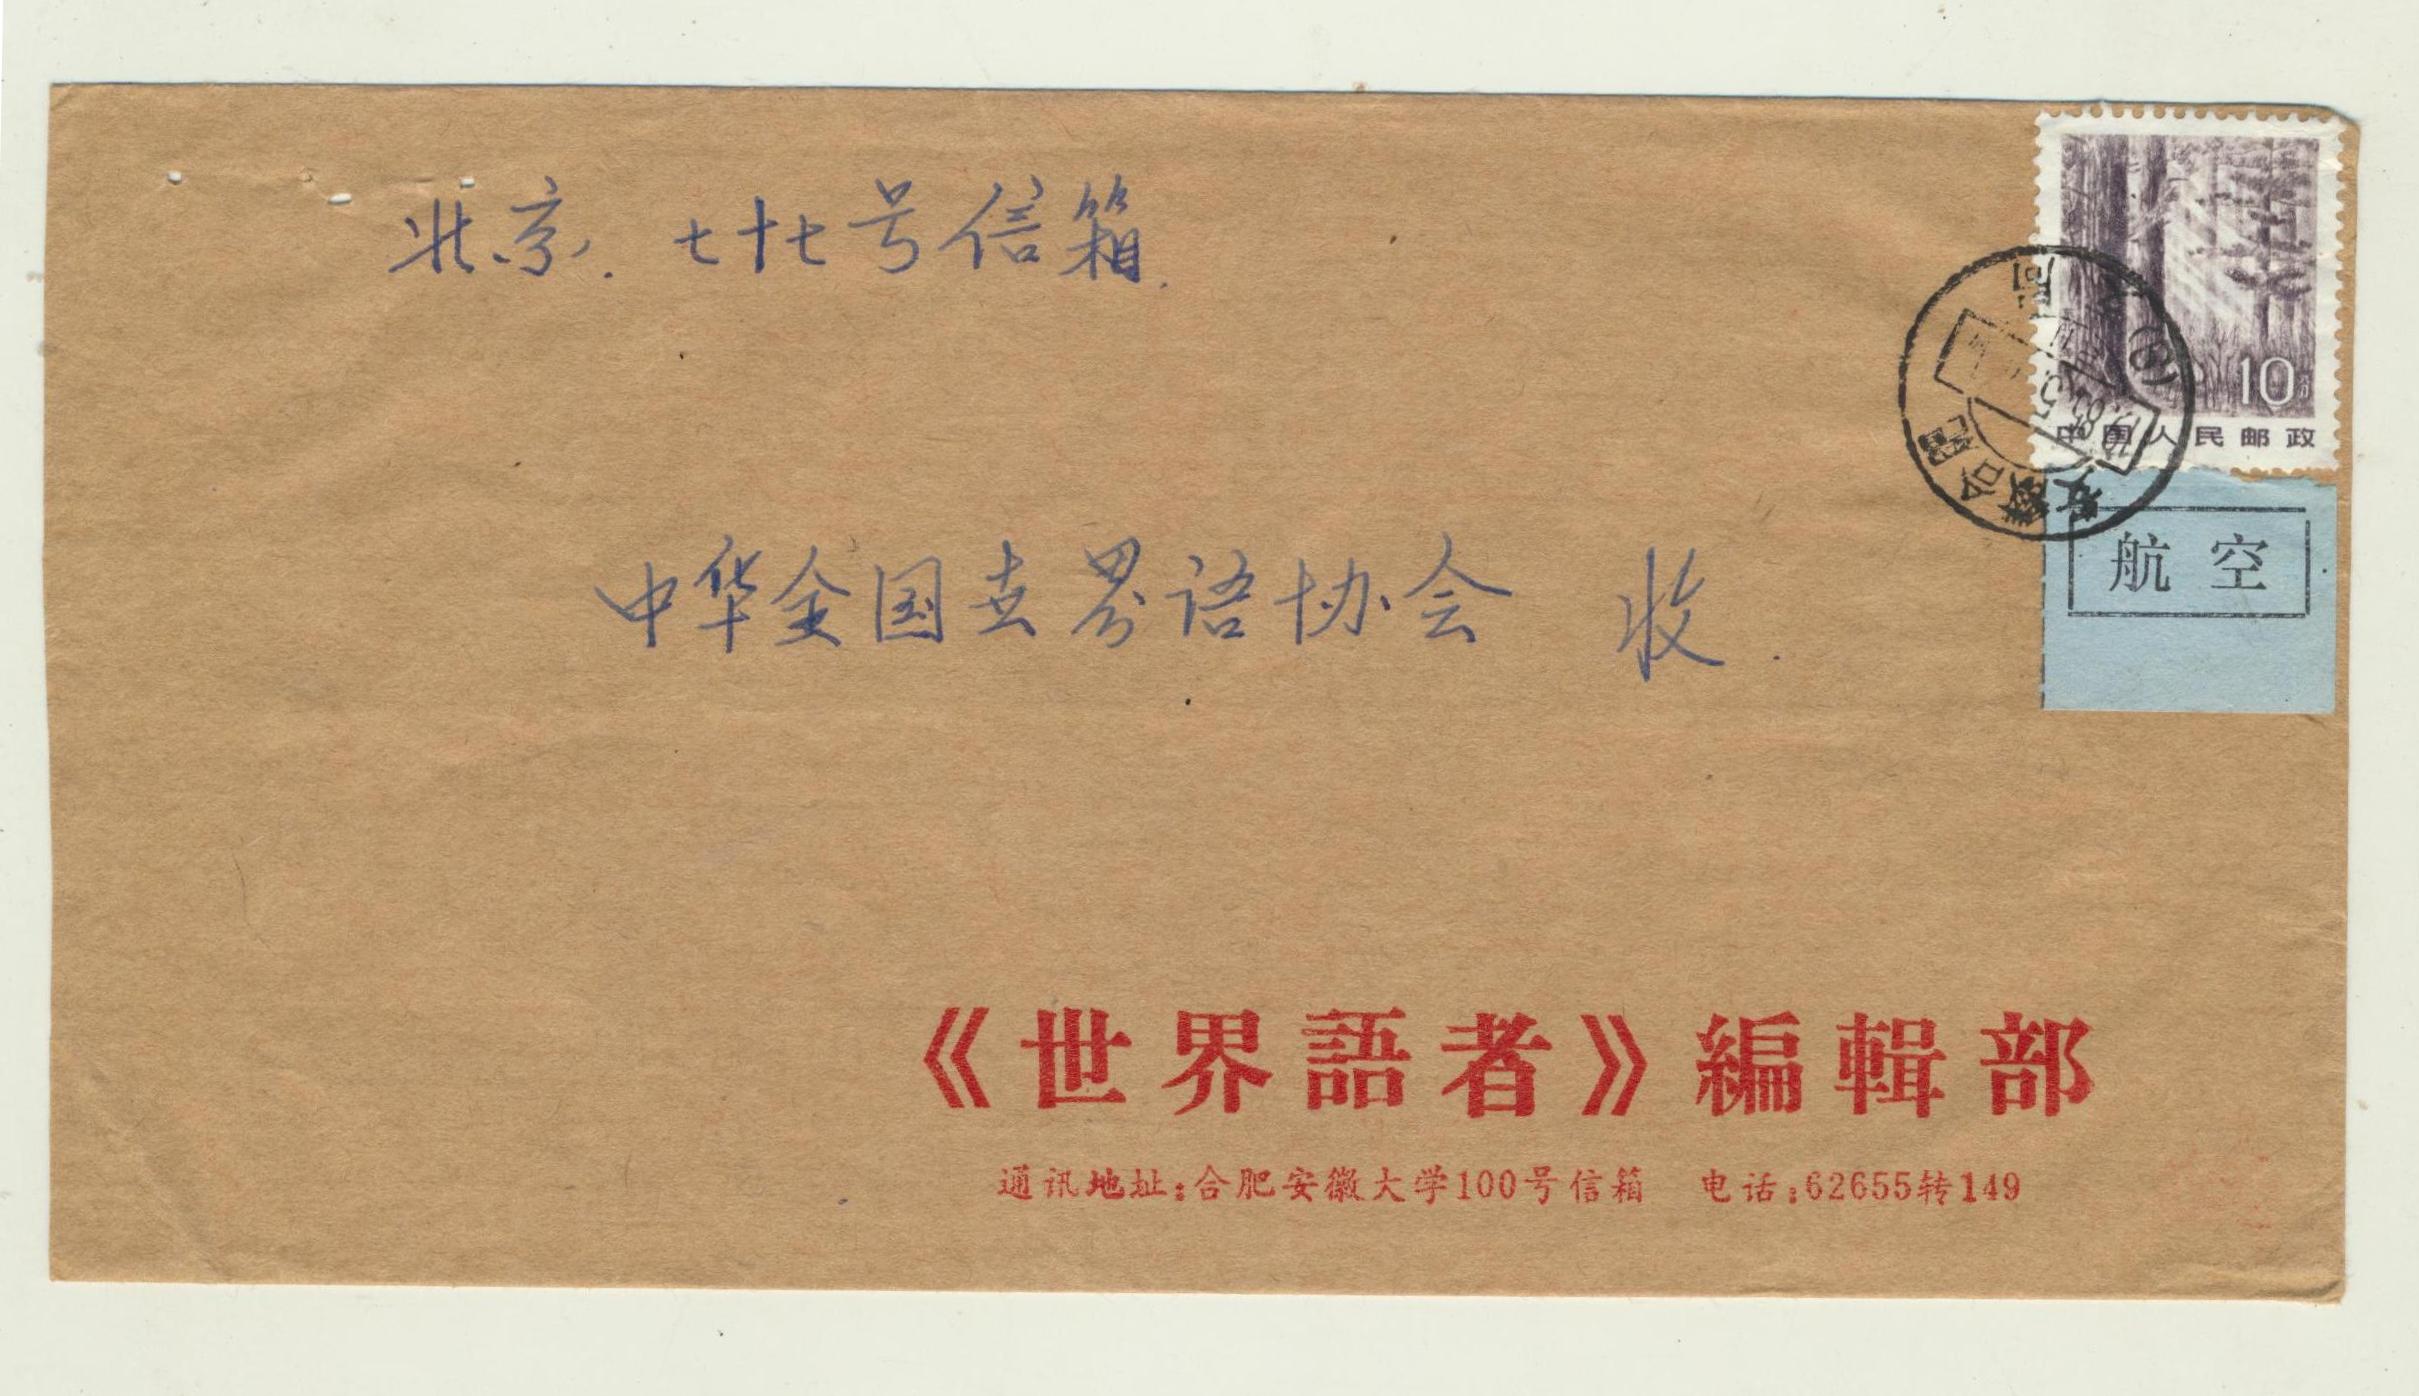 北京. 七十七号信箱.
10分
中国人民邮政
安徽合肥
航空
中华全国世界语协会 收.
《世界語者》編輯部
通讯地址:合肥安徽大学100号信箱 电话:62655转149